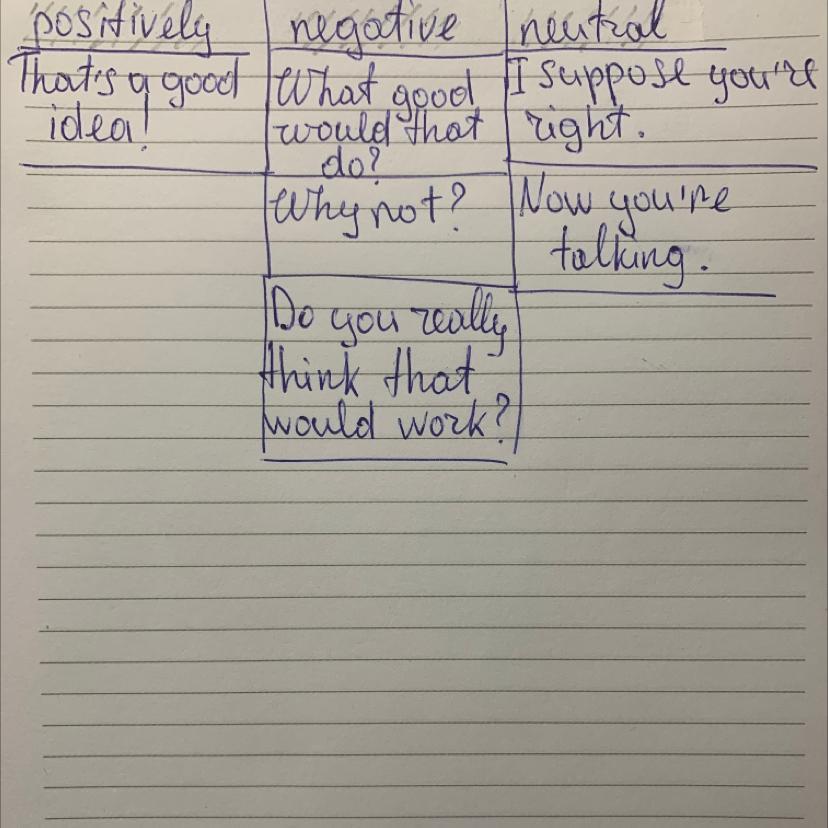 positively negative neutral
That's a good
idea!
What good
would that
do?
I suppose you're
right.
Why not?
Now you're
talking.
Do you really
think that
would work?